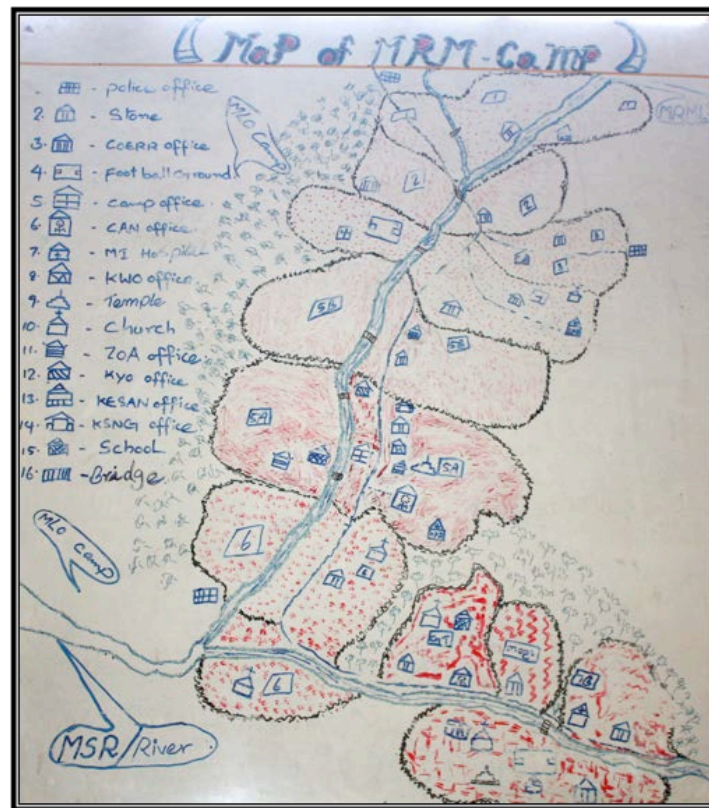 MaP of MRM-Camp
police office
2. - Store
3. - COERR office
4. - Football Ground
5. - Camp office
6. - CAN office
7. - MI Hospital
8. - KWO office
9. - Temple
10. - Church
11. - ZOA office
12. - KYO office
13. - KESAN office
14. - KSNG office
15. - School
16. - Bridge
MLO Camp
2
2
5B
5B
5A
5A
6
MLO Camp
6
MSR River